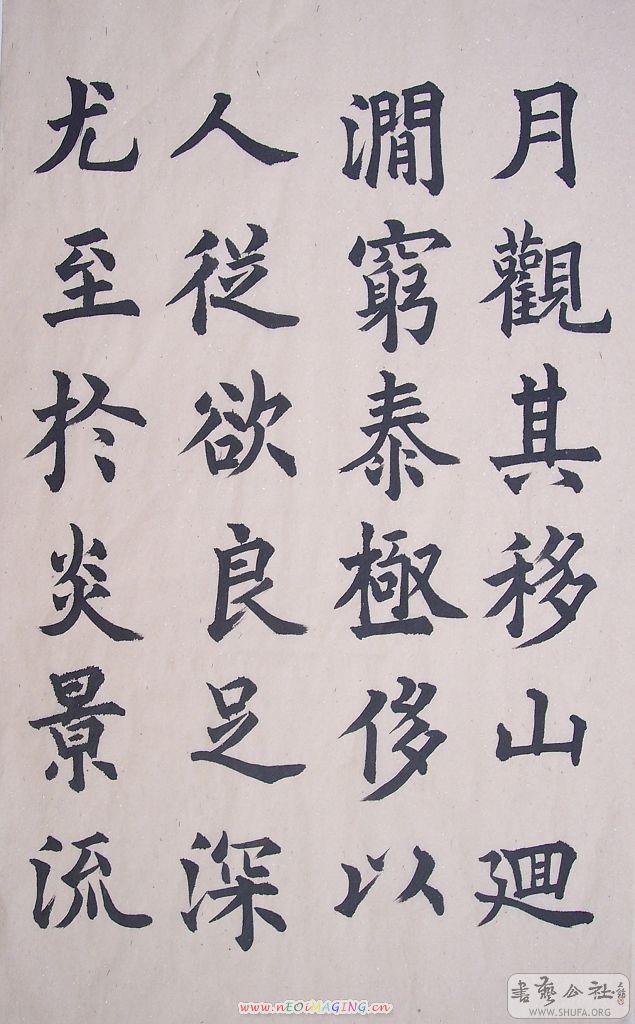 月觀其移山廻
澗窮泰極侈以
人從欲良足深
尤至於炎景流
www.nEOiMAGiNG.cn
書藝公社
WWW.SHUFA.ORG